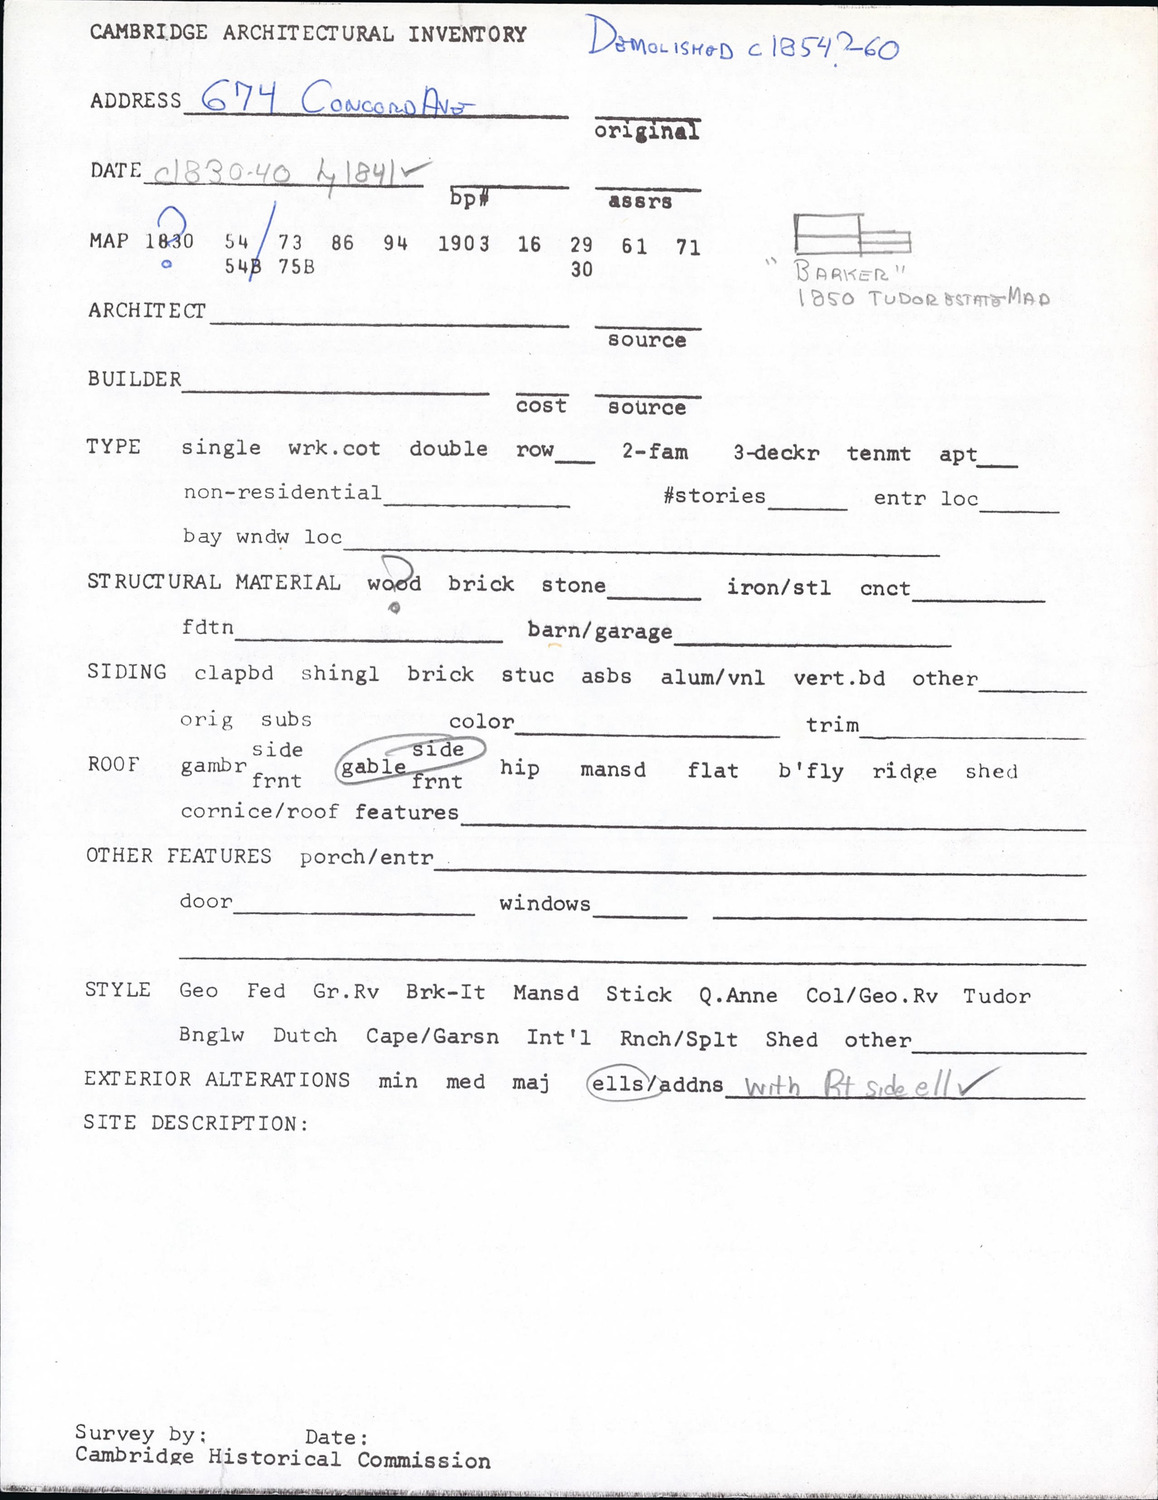 CAMBRIDGE ARCHITECTURAL INVENTORY DEMOLISHED c 1854?-60
ADDRESS 674 CONCORD AVE
original
DATE c1830-40 by 1841 ✓
bp# assrs
MAP 1830 54 / 73 86 94 1903 16 29 61 71
? 54B 75B 30
"BARKER"
1850 TUDOR ESTATE MAP
ARCHITECT
source
BUILDER
cost source
TYPE single wrk.cot double row 2-fam 3-deckr tenmt apt
non-residential #stories entr loc
bay wndw loc
STRUCTURAL MATERIAL wood ? brick stone iron/stl cnct
fdtn barn/garage
SIDING clapbd shingl brick stuc asbs alum/vnl vert.bd other
orig subs color trim
side side
ROOF gambr gable hip mansd flat b'fly ridge shed
frnt frnt
cornice/roof features
OTHER FEATURES porch/entr
door windows
STYLE Geo Fed Gr.Rv Brk-It Mansd Stick Q.Anne Col/Geo.Rv Tudor
Bnglw Dutch Cape/Garsn Int'l Rnch/Splt Shed other
EXTERIOR ALTERATIONS min med maj ells/addns with Rt side ell ✓
SITE DESCRIPTION:
Survey by: Date:
Cambridge Historical Commission